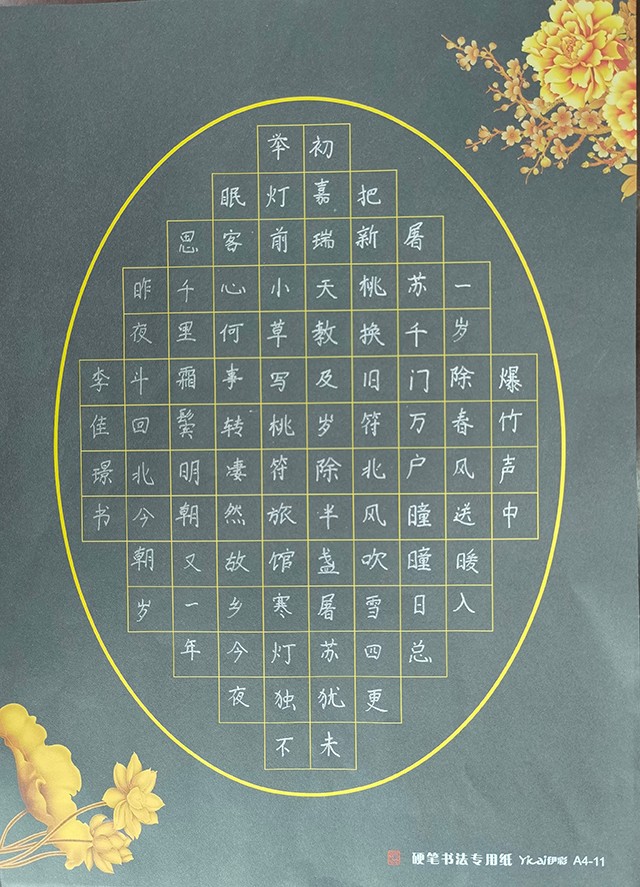 爆竹声中
一岁除春风送暖入
屠苏千门万户瞳瞳日总
把新桃换旧符北风吹雪四更
初嘉瑞天教及岁除半盏屠苏犹未
举灯前小草写桃符旅馆寒灯独不
眠客心何事转凄然故乡今夜
思千里霜鬓明朝又一年
昨夜斗回北今朝岁
李佳璟书
硬笔书法专用纸 Yicai伊彩 A4-11